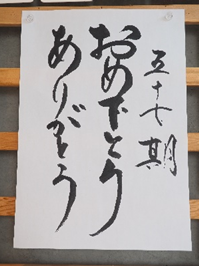 五十七期
おめでとう
ありがとう